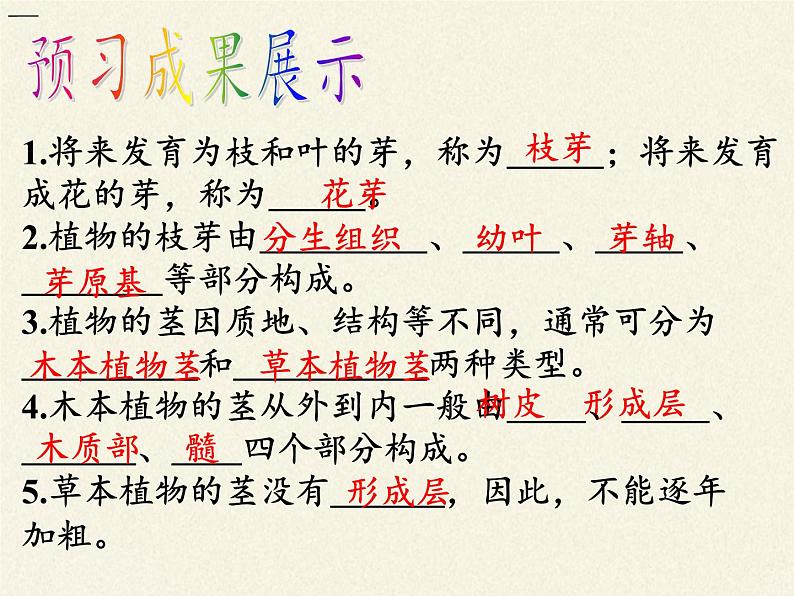 预习成果展示
1.将来发育为枝和叶的芽，称为枝芽；将来发育
成花的芽，称为花芽。
2.植物的枝芽由分生组织、幼叶、芽轴、
芽原基等部分构成。
3.植物的茎因质地、结构等不同，通常可分为
木本植物茎和草本植物茎两种类型。
4.木本植物的茎从外到内一般由树皮、形成层、
木质部、髓四个部分构成。
5.草本植物的茎没有形成层，因此，不能逐年
加粗。